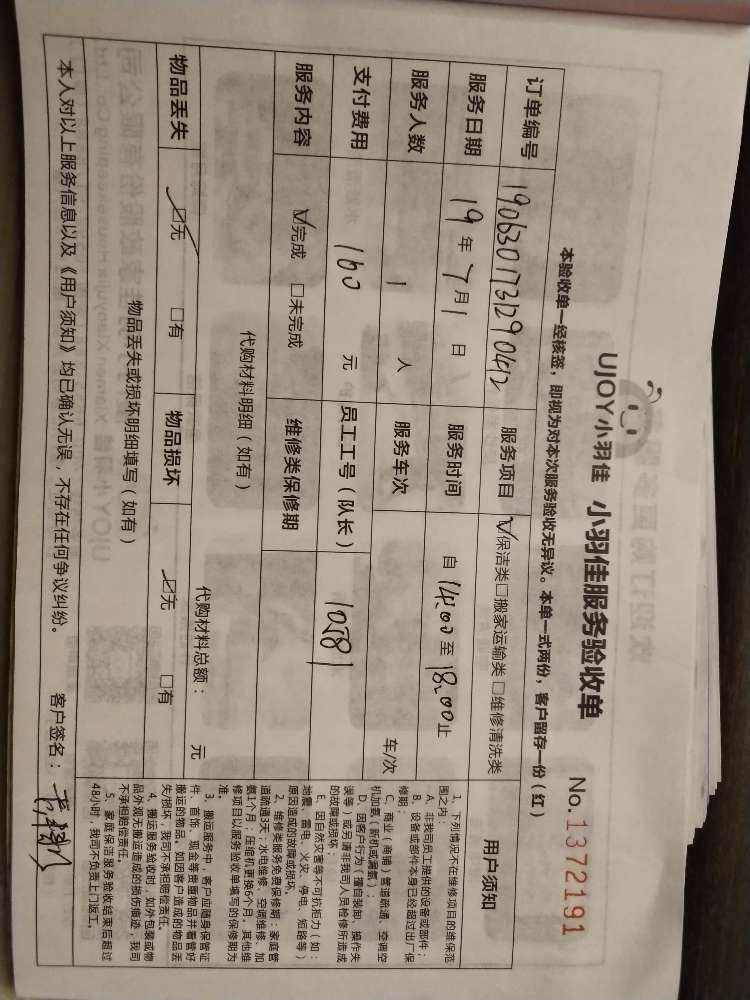 UJOY小羽佳 小羽佳服务验收单 No.1372191
本验收单一经核签，即视为对本次服务验收无异议。本单一式两份，客户留存一份（红）
订单编号 1906301731290412 服务项目 ☑保洁类□搬家运输类□维修清洗类
服务日期 19年7月1日 服务时间 自14:00至18:00止
服务人数 1人 服务车次 车/次
支付费用 160元 员工工号（队长） 10581
服务内容 ☑完成 □未完成 维修类保修期
代购材料明细（如有） 代购材料总额： 元
物品丢失 ☑无 □有 物品损坏 ☑无 □有
物品丢失或损坏明细填写（如有）
本人对以上服务信息以及《用户须知》均已确认无误，不存在任何争议纠纷。 客户签名：
用户须知
1、下列情况不在维修项目的维保范
围之内：
A、非我司员工提供的设备或部件；
B、设备或部件本身已经超过出厂保
修期；
C、商业（商铺）管道疏通、空调空
机加氨（新机或漏氨）；
D、因客户行为（擅自装卸、操作失
误等）或另请非我司人员检修所造成
的故障或损坏；
E、因自然灾害等不可抗拒力（如：
地震、雷电、火灾、停电、短路等）
原因造成的故障或损坏。
2、维修类服务免费保修期：家庭管
道疏通3天；水电维修、空调维修、加
氨1个月；压缩机更换6个月，其他维
修项目以服务验收单填写的保修期为
准。
3、搬运服务中，客户应随身保管证
件、首饰、现金等贵重物品并看管好
搬运的物品。如因客户造成的物品丢
失/损坏，我司不承担赔偿责任。
4、搬运服务验收时，如外包装或物
品外观无搬运造成的损伤痕迹，我司
不承担赔偿责任。
5、家庭保洁服务验收结束后超过
48小时，我司不负责上门返工。